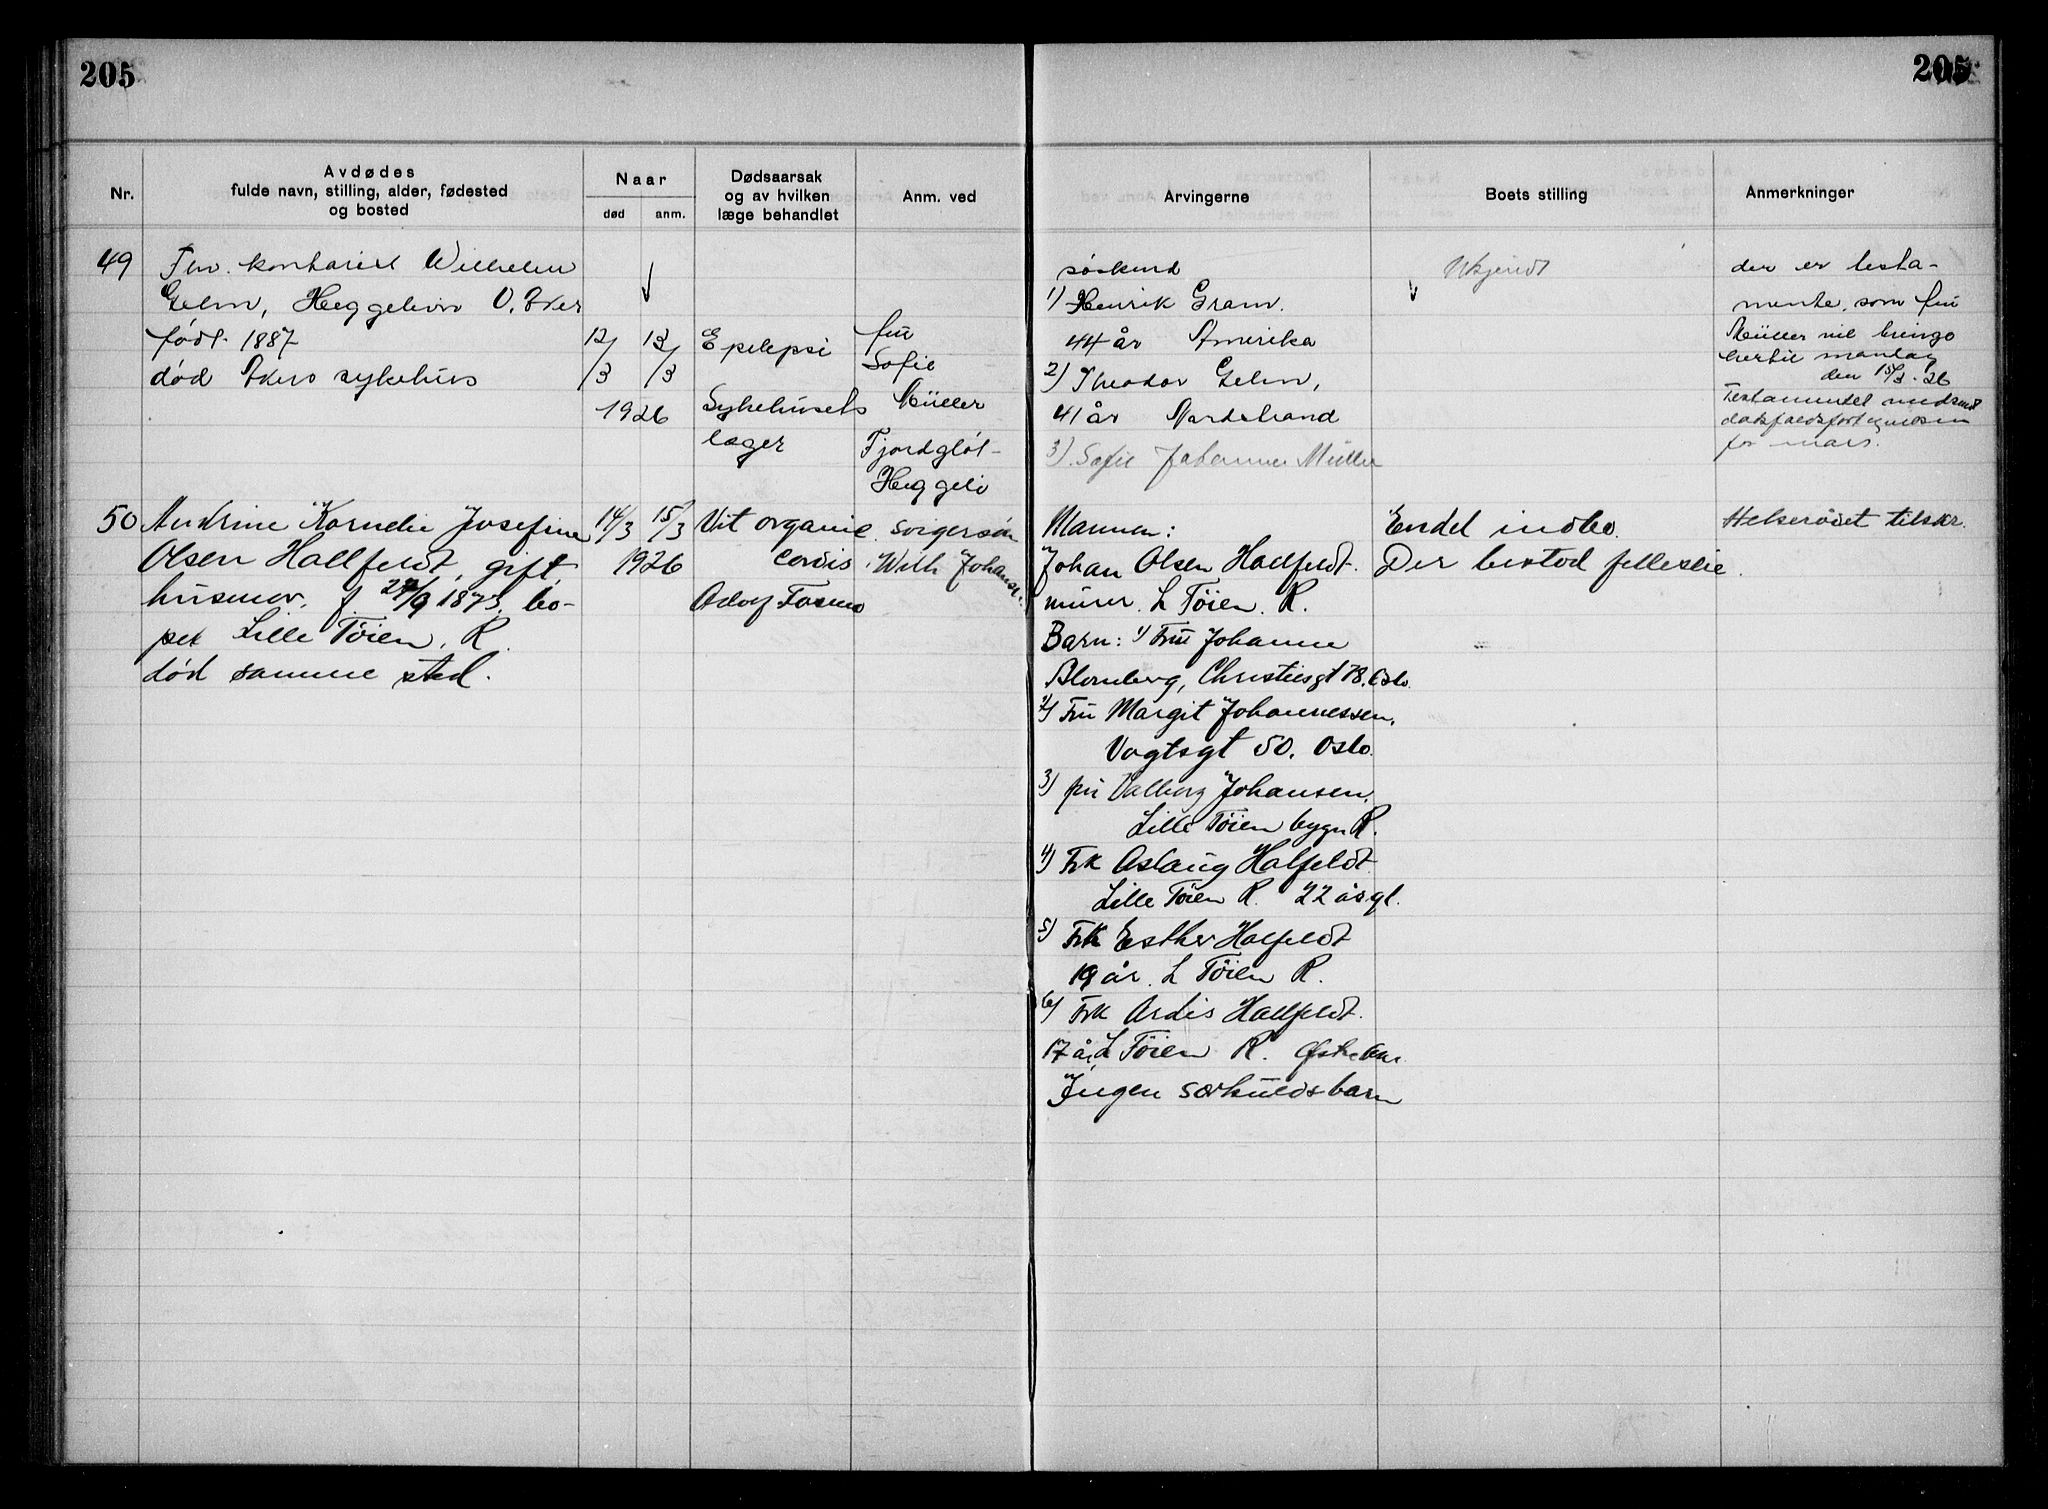 205
205
Nr.
Avdødes
fulde navn, stilling, alder, fødested
og bosted
Naar
død
anm.
Dødsaarsak
og av hvilken
læge behandlet
Anm. ved
Arvingerne
Boets stilling
Anmerkninger
49
Wilhelm
Heggelivn V. Aker
født 1887
død Akers sykehus
12/3
13/3
1926
Epilepsi
Sykehusets
læger
fru
Sofie
Müller
Heggeli
søskend
1) Henrik Gram.
44 år Amerika
2) Theodor
41 år Nordstrand
3). Sofie Johanne Müller
Ukjendt
der er testa-
mente, som fru
Müller vil bringe
hertil mandag
den 15/3. 26
Testamentet
for mars.
50
Andrine Kornelie Josefine
Olsen Hallfeldt, gift,
husmor. f. 1873. bo-
pæl Lille Tøien. R.
død samme sted.
14/3
15/3
1926
Vit organic.
cordis
Adolf
svigersøn
Wilh Johansen
Mannen:
Johan Olsen Hallfeldt.
murer. L Tøien. R.
Barn: 1) Fru Johanne
Blomberg, Christiesgt 78. Oslo.
2) Fru Margit Johannessen.
Vogtsgt 50. Oslo.
3) fru Valborg Johansen.
Lille Tøien bygn R.
4) Frk Aslaug Halfeldt
Lille Tøien R. 22 år gl.
5) Frk Esther Halfeldt
19 år. L Tøien R.
6) Frk Ardis Hallfeldt.
17 år L Tøien R. Østre Aker.
Ingen særkuldsbarn
Endel indbo.
Der bestod felleseie.
Helserådet tilskr.